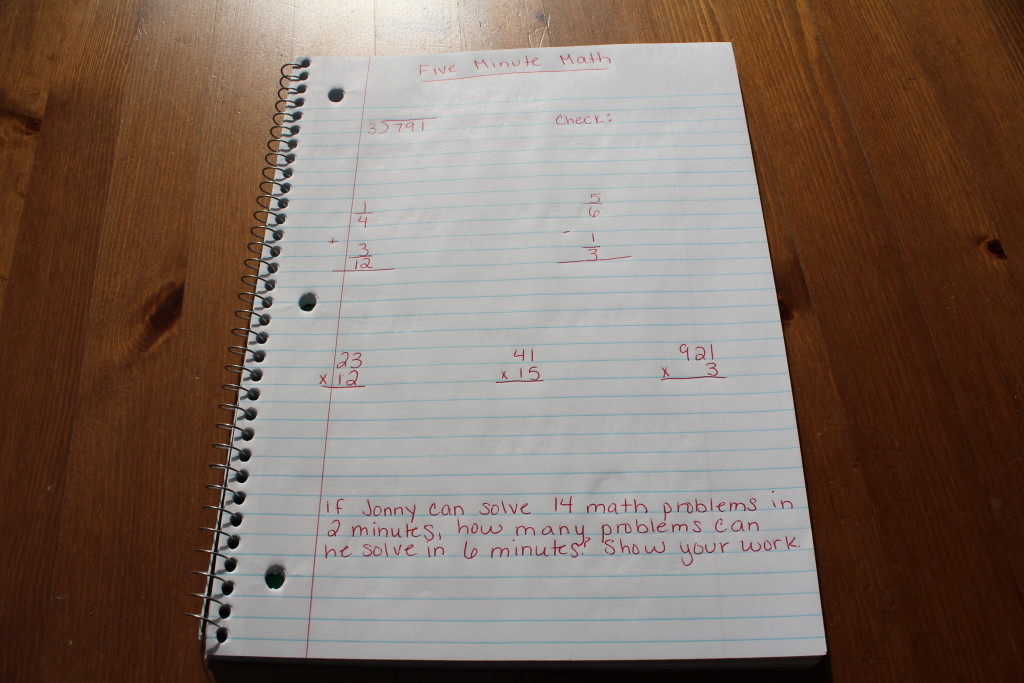 Five Minute Math
3)791
Check:
1
4
+
3
12
5
6
-
1
3
23
x 12
41
x 15
921
x 3
If Jonny can solve 14 math problems in
2 minutes, how many problems can
he solve in 6 minutes? Show your work.